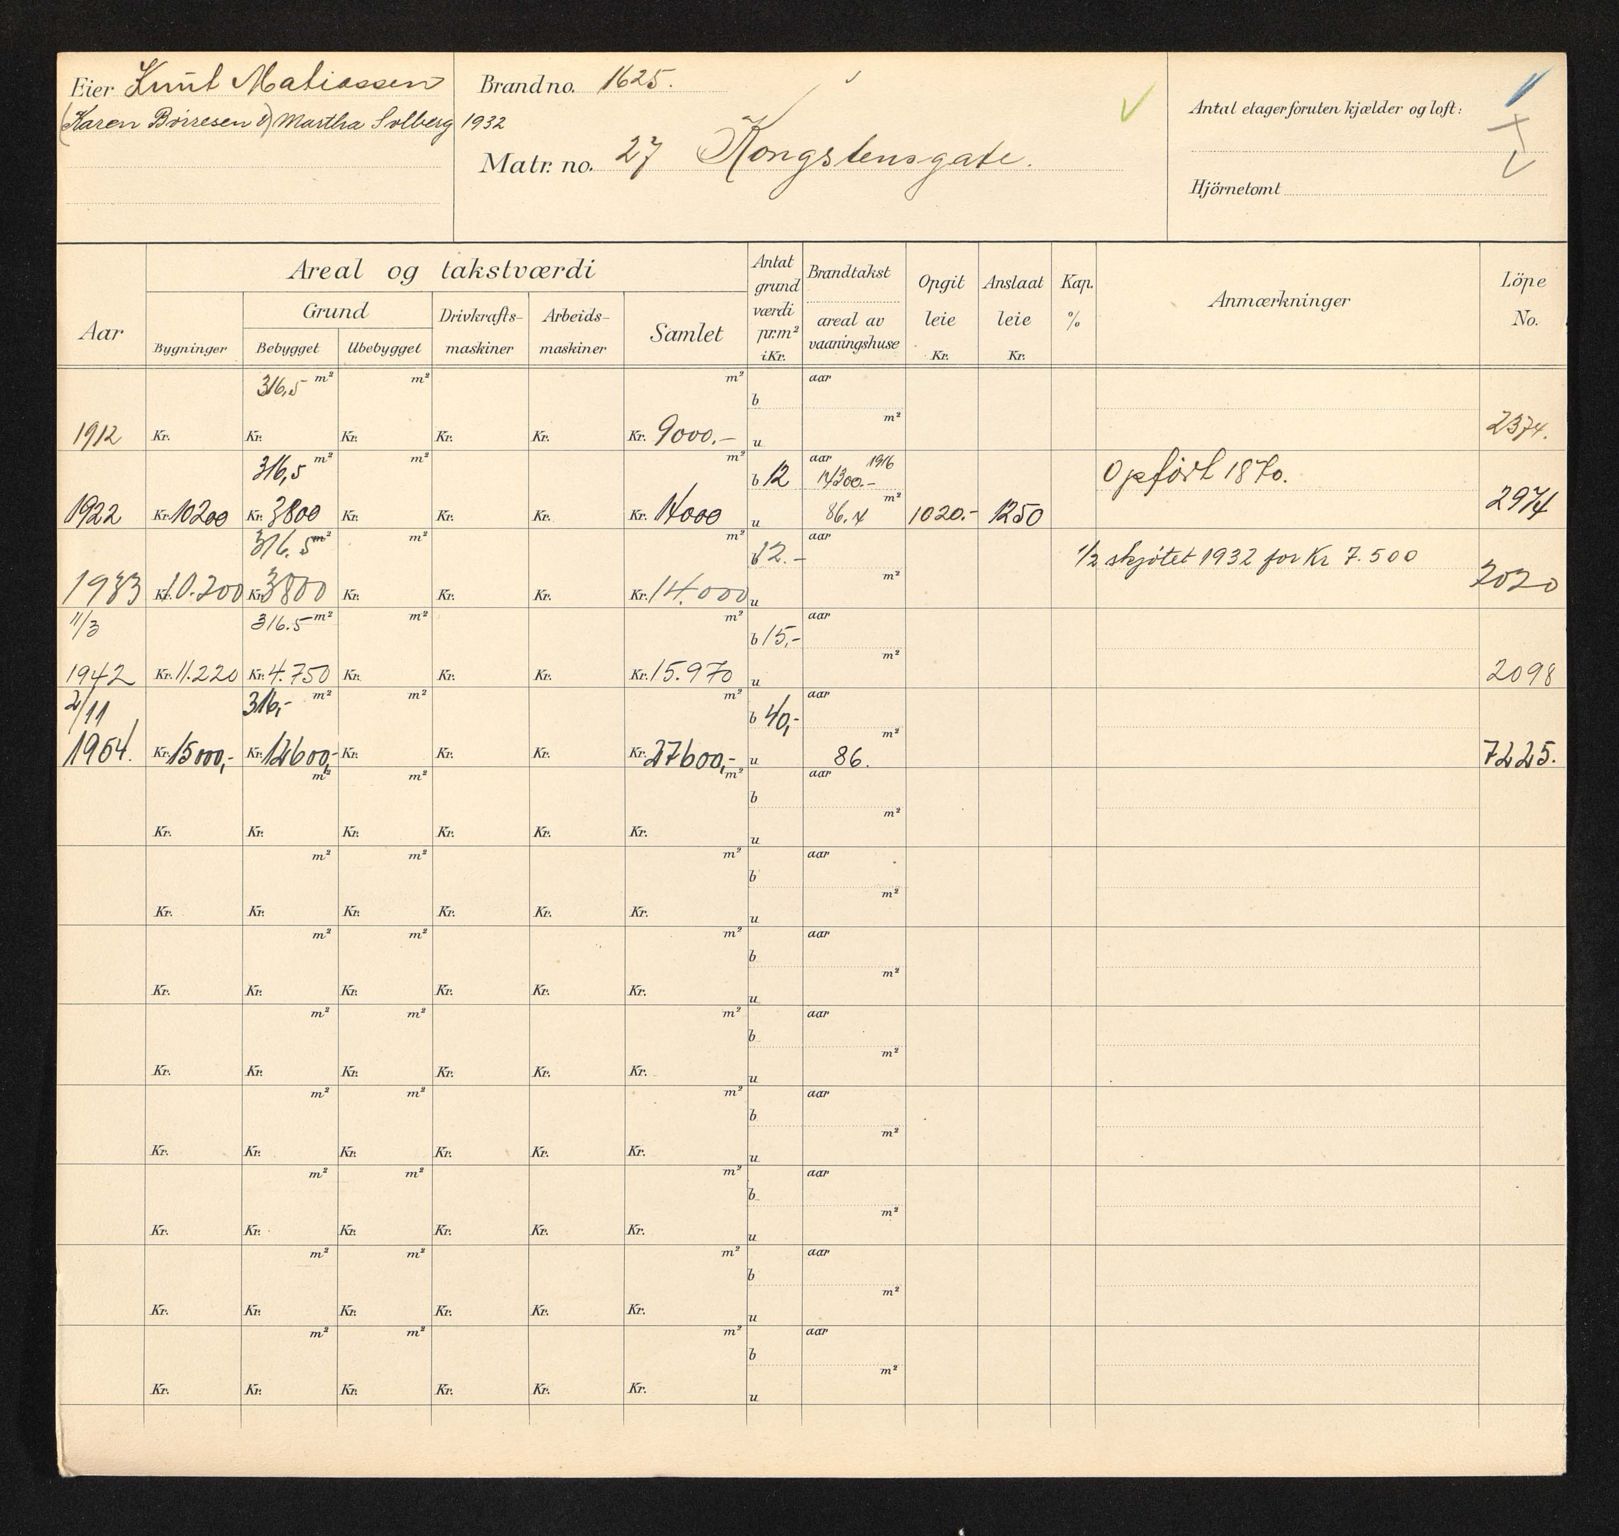 Eier Knut Matiassen
(Karen Börresen &) Martha Solberg 1932
Brandno. 1625.
Matr. no. 27 Kongstensgate.
Antal etager foruten kjælder og loft:
Hjörnetomt
Aar
Areal og takstværdi
Bygninger
Grund
Bebygget Ubebygget
Drivkrafts-
maskiner
Arbeids-
maskiner
Samlet
Antat
grund
værdi
pr.m²
i Kr.
Brandtakst
areal av
vaaningshuse
Opgit
leie
Kr.
Anslaat
leie
Kr.
Kap.
%
Anmærkninger
Löpe
No.
316,5 m² m² m² b aar
1912 Kr. Kr. Kr. Kr. Kr. Kr. 9000.- u m² 2374.
316,5 m² m² m² b 12 aar 1916 14300.- Opført 1870.
1922 Kr. 10200 Kr. 3800 Kr. Kr. Kr. Kr. 14000 u 86.4 m² 1020.- 1250 2974
316.5 m² m² m² b 12.- aar 1/2 skjøtet 1932 for Kr 7.500
1933 Kr. 10.200 Kr. 3800 Kr. Kr. Kr. Kr. 14.000 u m² 2020
11/3 316.5 m² m² m² b 15,- aar
1942 Kr. 11.220 Kr. 4.750 Kr. Kr. Kr. Kr. 15.970 u m² 2098
2/11 316,- m² m² m² b 40,- aar
1954. Kr. 15000,- Kr. 12600,- Kr. Kr. Kr. Kr. 27600,- u 86. m² 7225.
m² m² m² b aar
Kr. Kr. Kr. Kr. Kr. Kr. u m²
m² m² m² b aar
Kr. Kr. Kr. Kr. Kr. Kr. u m²
m² m² m² b aar
Kr. Kr. Kr. Kr. Kr. Kr. u m²
m² m² m² b aar
Kr. Kr. Kr. Kr. Kr. Kr. u m²
m² m² m² b aar
Kr. Kr. Kr. Kr. Kr. Kr. u m²
m² m² m² b aar
Kr. Kr. Kr. Kr. Kr. Kr. u m²
m² m² m² b aar
Kr. Kr. Kr. Kr. Kr. Kr. u m²
m² m² m² b aar
Kr. Kr. Kr. Kr. Kr. Kr. u m²